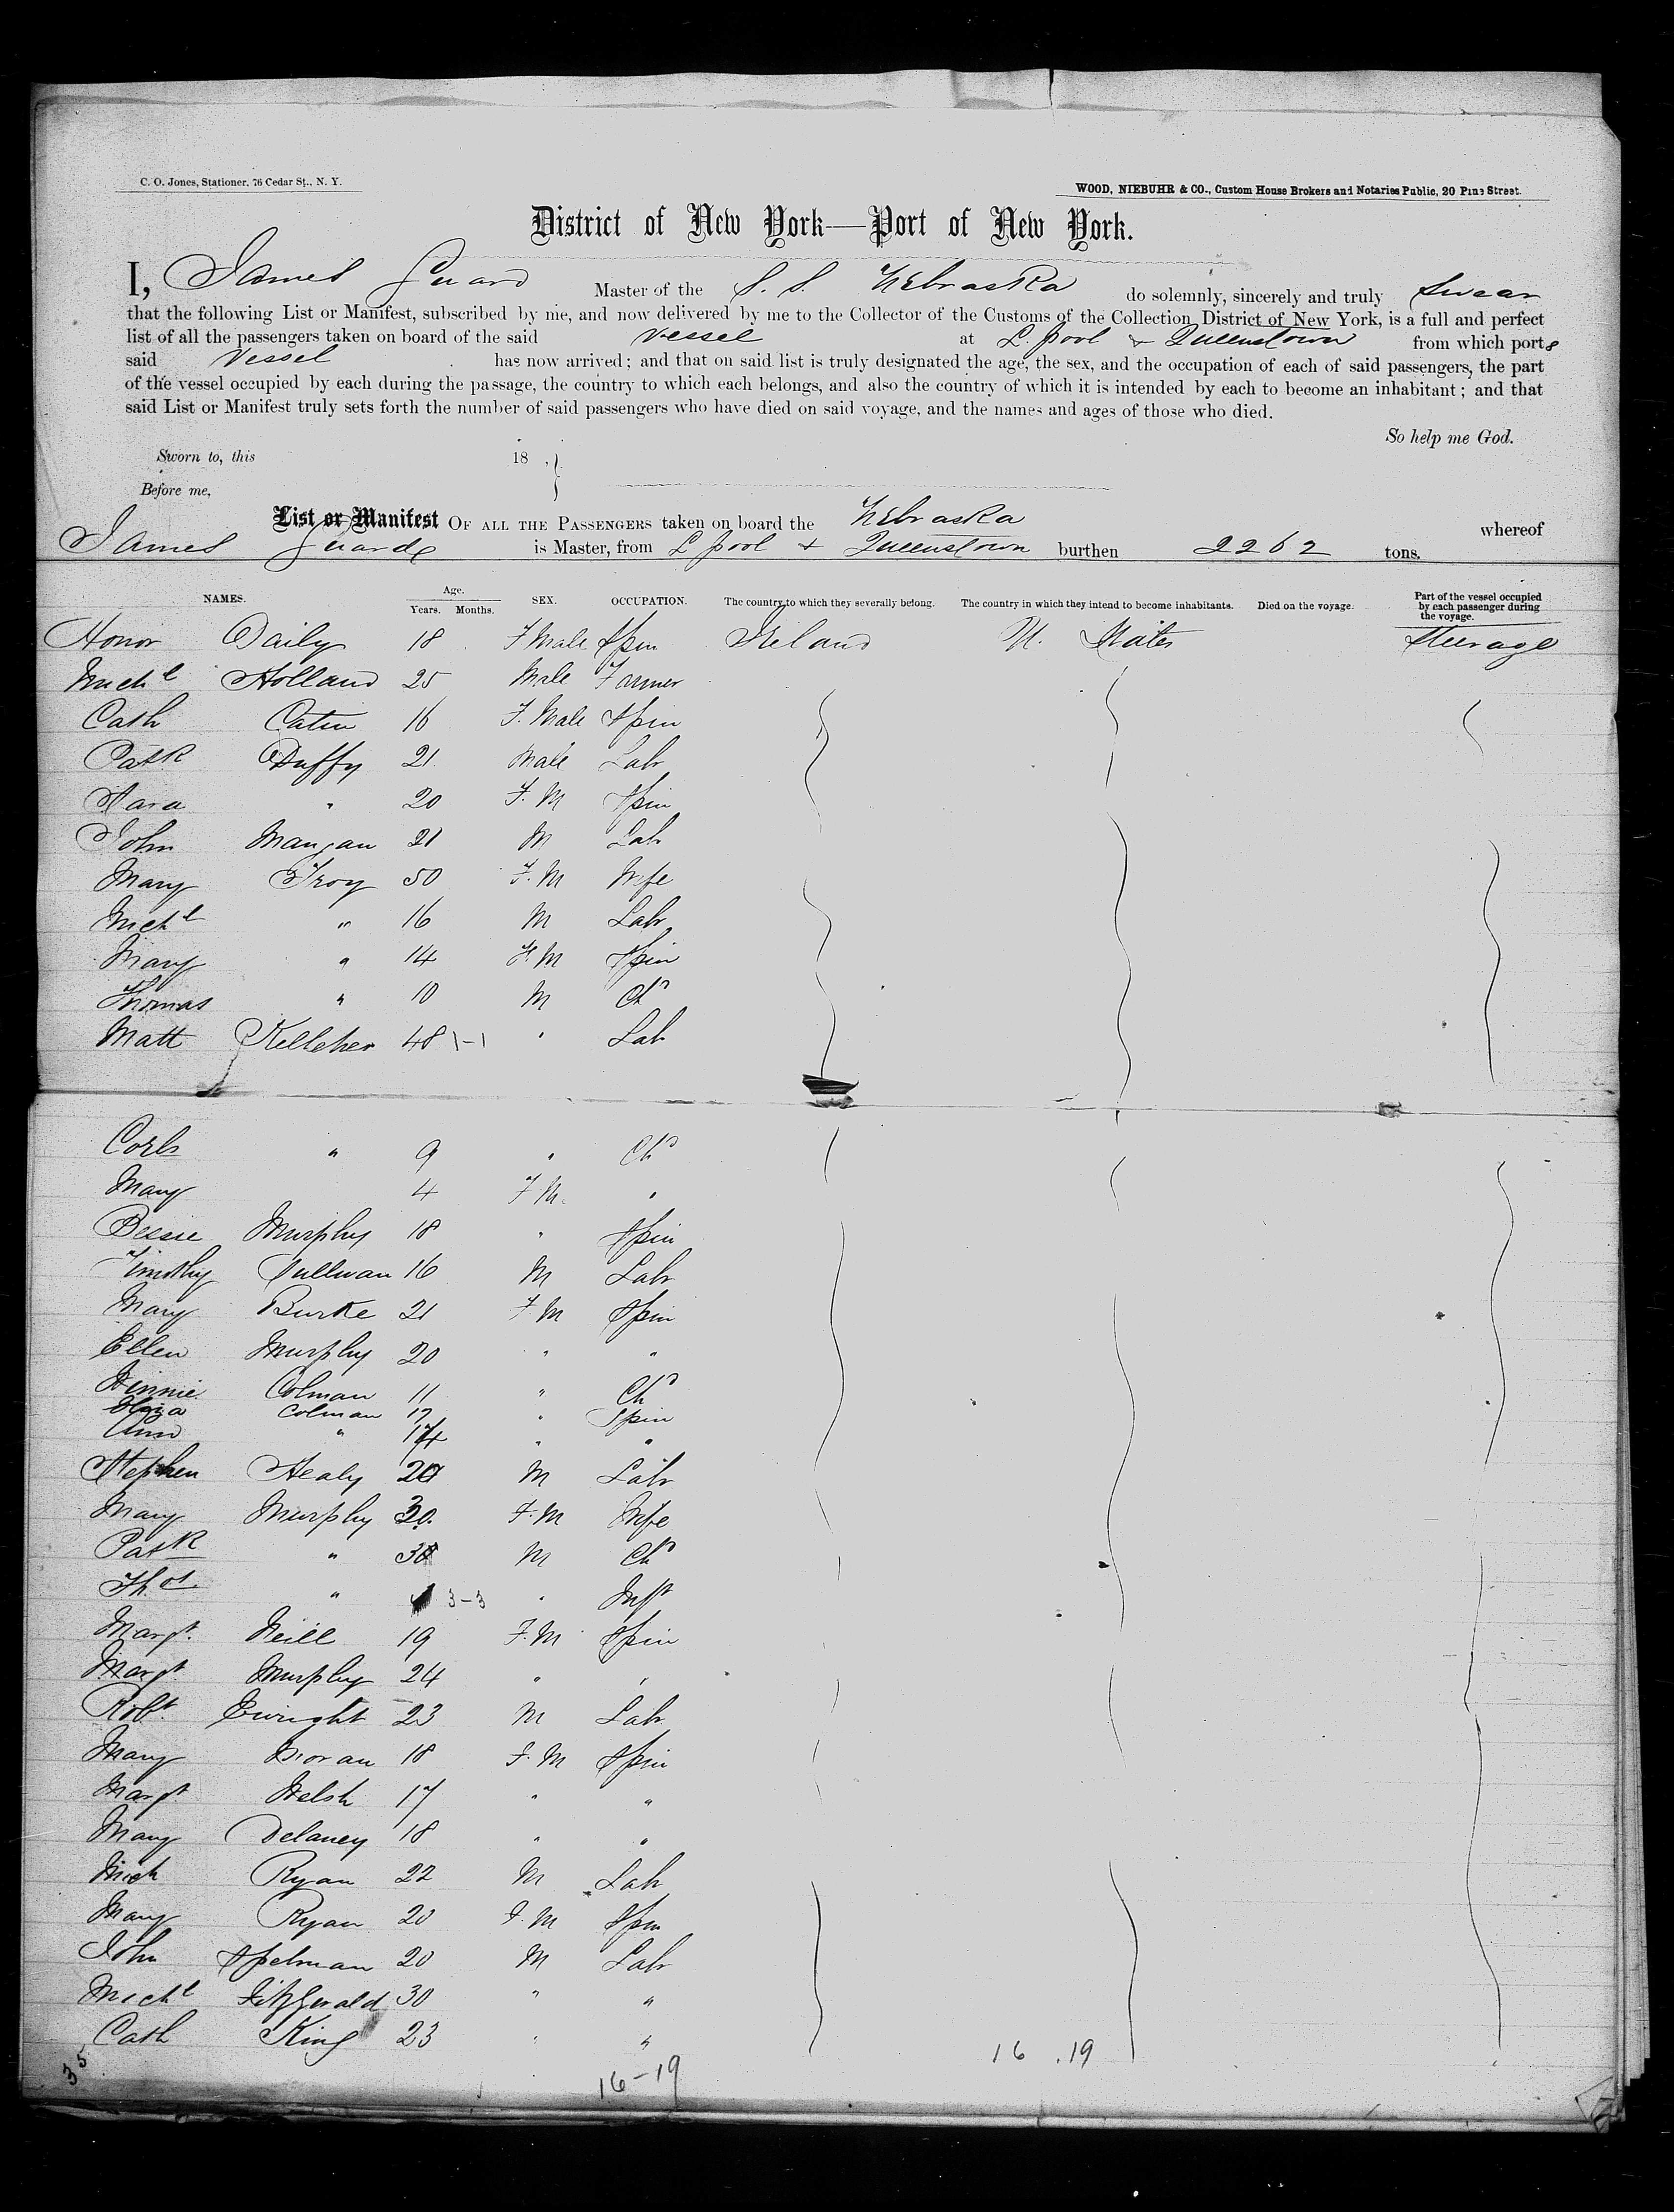 C. O. Jones, Stationer, 76 Cedar St., N. Y.
WOOD, NIEBUHR & CO., Custom House Brokers and Notaries Public, 20 Pine Street.
District of New York—Port of New York.
I, James Guard Master of the S. S. Nebraska do solemnly, sincerely and truly Swear
that the following List or Manifest, subscribed by me, and now delivered by me to the Collector of the Customs of the Collection District of New York, is a full and perfect
list of all the passengers taken on board of the said Vessel at L. pool & Queenstown from which ports
said Vessel has now arrived; and that on said list is truly designated the age, the sex, and the occupation of each of said passengers, the part
of the vessel occupied by each during the passage, the country to which each belongs, and also the country of which it is intended by each to become an inhabitant; and that
said List or Manifest truly sets forth the number of said passengers who have died on said voyage, and the names and ages of those who died.
So help me God.
Sworn to, this 18
Before me,
List or Manifest OF ALL THE PASSENGERS taken on board the Nebraska whereof
James Guard is Master, from L pool & Queenstown burthen 2262 tons.
NAMES. Age. Years. Months. SEX. OCCUPATION. The country to which they severally belong. The country in which they intend to become inhabitants. Died on the voyage. Part of the vessel occupied by each passenger during the voyage.
Honor Daily 18 F Male Spin Ireland U. States Steerage
Michl Holland 25 Male Farmer
Cath 16 F. Male Spin
Patk Duffy 21 Male Labr
" 20 F. M Spin
John Mangan 21 M Lab
Mary Troy 50 F. M Wife
Michl " 16 M Labr
Mary " 14 F. M Spin
Thomas " 10 M Chd
Matt Kelleher 48 1-1 " Lab
Corls " 9 " Chd
Mary 4 F M. "
Bessie Murphy 18 " Spin
Timothy Sullivan 16 M Labr
Mary Burke 21 F M Spin
Ellen Murphy 20 " "
Colman 11 " Chd
Eliza Colman 17 " Spin
Ann " 14 " "
Stephen Healy 20 M Labr
Mary Murphy 30 F. M Wife
Patk " M Chd
Thos " 3-3 " Inft
Margt. Neill 19 F. M Spin
Margt Murphy 24 " "
Robt. Enright 23 M Labr
Mary Moran 18 F. M Spin
Margt Welsh 17 " "
Mary Delaney 18 " "
Mich Ryan 22 M Lab
Mary Ryan 20 F. M Spin
John Spelman 20 M Labr
Michl FitzGerald 30 " "
Cath King 23 " "
35 16-19 16 . 19